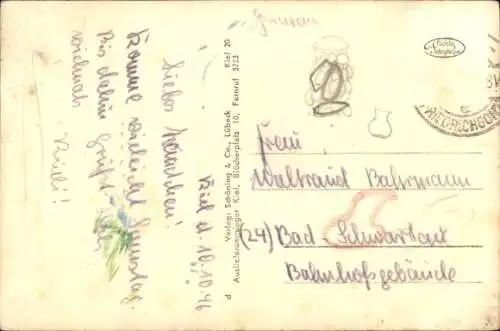 Kiel d. 10.10.46
Liebes Mäuschen!
Komme vieleicht Samstag.
Bis dahin grüßt Dich
vielmals
Rudi!
d Verlag: Schöning & Co., Lübeck
Auslieferungslager Kiel, Blücherplatz 10, Fernruf 3723 Kiel 20
German
FRIEDRICHSORT
Frau
Waltraud Bahrmann
(24) Bad-Schwartau
Bahnhofsgebäude